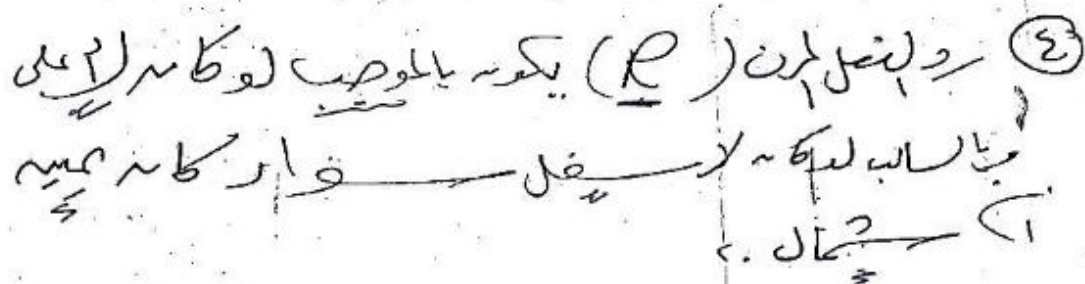 ٤ رد الفعل المرن (R) يكون بالموجب لو كان لأعلى
وبالسالب لو كان لأسفل سواء كان يمين
أو شمال .